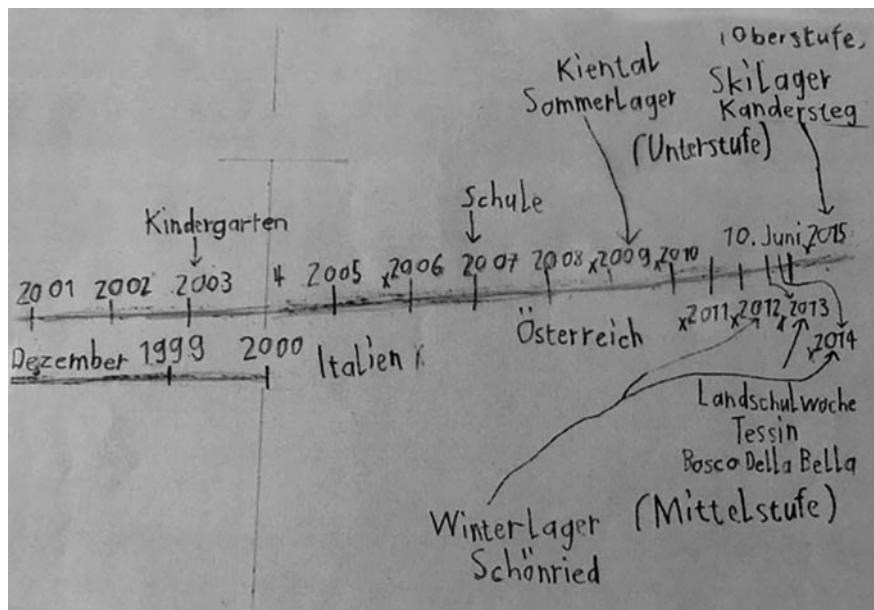 (Oberstufe,
Skilager
Kandersteg
Kiental
Sommerlager
(Unterstufe)
Schule
Kindergarten
10. Juni, x2015
2001 2002 2003 4 2005 x2006 2007 2008 x2009 x2010
x2011 x2012 x2013
x2014
Dezember 1999 2000
Italien x
Österreich
Landschulwoche
Tessin
Bosco Della Bella
(Mittelstufe)
Winterlager
Schönried